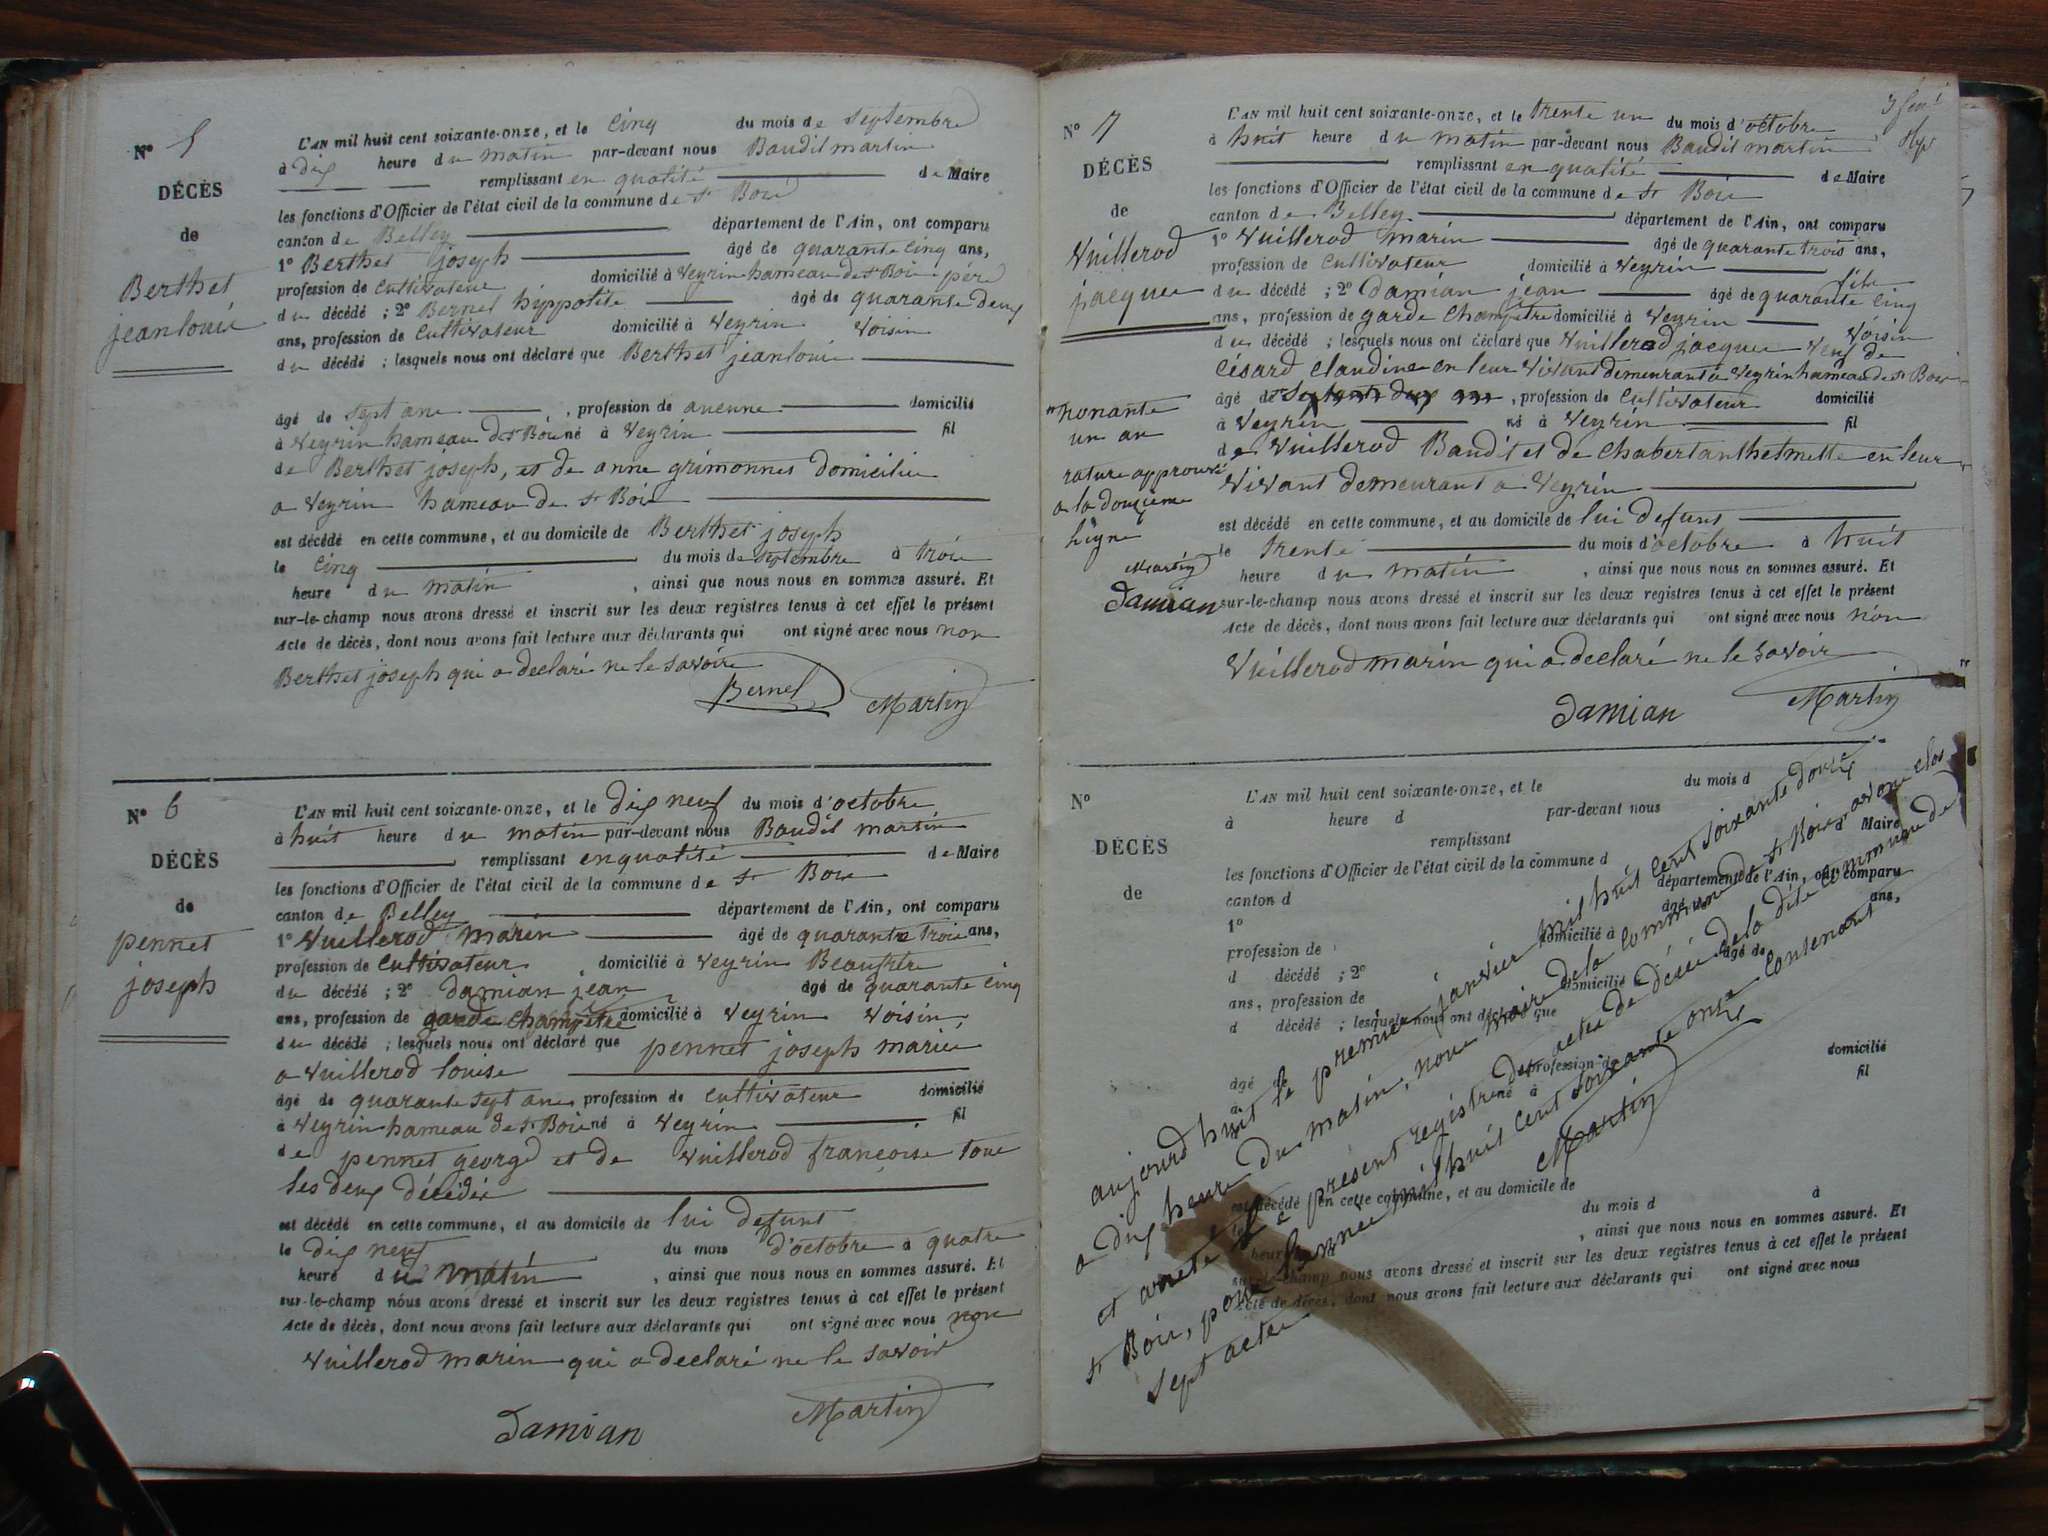 N° 5
DÉCÈS
de
Berthet
jean louis
L'AN mil huit cent soixante-onze, et le Cinq du mois de septembre
à dix heure du matin par-devant nous Baudil martin
remplissant en qualité de Maire
les fonctions d'Officier de l'état civil de la commune de St Bois
canton de Belley département de l'Ain, ont comparu
1° Berthet joseph âgé de quarante cinq ans,
profession de cultivateur domicilié à Veyrin hameau de St Bois père
du décédé ; 2° Bernel hyppolite âgé de quarante deux
ans, profession de cultivateur domicilié à Veyrin Voisin
du décédé ; lesquels nous ont déclaré que Berthet jean louis
âgé de sept ans, profession de aucune domicilié
à Veyrin hameau de St Bois né à Veyrin fil
de Berthet joseph, et de anne grimonnet domicilié
a Veyrin hameau de St Bois
est décédé en cette commune, et au domicile de Berthet joseph
le Cinq du mois de septembre à trois
heure du matin, ainsi que nous nous en sommes assuré. Et
sur-le-champ nous avons dressé et inscrit sur les deux registres tenus à cet effet le présent
Acte de décès, dont nous avons fait lecture aux déclarants qui ont signé avec nous non
Berthet joseph qui a declaré ne le savoire
Bernel Martin
N° 6
DÉCÈS
de
pennet
joseph
L'AN mil huit cent soixante-onze, et le dix neuf du mois d'octobre
à huit heure du matin par-devant nous Baudil martin
remplissant en qualité de Maire
les fonctions d'Officier de l'état civil de la commune de St Bois
canton de Belley département de l'Ain, ont comparu
1° Vuillerod marin âgé de quarante trois ans,
profession de cultivateur, domicilié à Veyrin Beaufrère
du décédé ; 2° damian jean âgé de quarante cinq
ans, profession de garde champêtre domicilié à Veyrin Voisin
du décédé ; lesquels nous ont déclaré que pennet joseph marié
a Vuillerod louise
âgé de quarante sept ans, profession de cultivateur domicilié
à Veyrin hameau de St Bois né à Veyrin fil
de pennet george et de Vuillerod françoise tous
les deux décédés
est décédé en cette commune, et au domicile de lui defunt
le dix neuf du mois d'octobre à quatre
heure du matin, ainsi que nous nous en sommes assuré. Et
sur-le-champ nous avons dressé et inscrit sur les deux registres tenus à cet effet le présent
Acte de décès, dont nous avons fait lecture aux déclarants qui ont signé avec nous non
Vuillerod marin qui a declaré ne le savoir
damian Martin
N° 7
DÉCÈS
de
Vuillerod
jacques
L'AN mil huit cent soixante-onze, et le trente un du mois d'octobre
à huit heure du matin par-devant nous Baudil martin
remplissant en qualité de Maire
les fonctions d'Officier de l'état civil de la commune de St Bois
canton de Belley département de l'Ain, ont comparu
1° Vuillerod marin âgé de quarante trois ans,
profession de cultivateur domicilié à Veyrin fils
du décédé ; 2° damian jean âgé de quarante cinq
ans, profession de garde champêtre domicilié à Veyrin Voisin
du décédé ; lesquels nous ont déclaré que Vuillerod jacques Veuf de
Césard Claudine en leur Vivant demeurant a Veyrin hameau de St Bois
âgé de septante deux ans, profession de cultivateur domicilié
à Veyrin né à Veyrin fil
de Vuillerod Baudil et de Chabert anthelmette en leur
Vivant demeurant a Veyrin
est décédé en cette commune, et au domicile de lui defunt
le trente du mois d'octobre à huit
heure du matin, ainsi que nous nous en sommes assuré. Et
sur-le-champ nous avons dressé et inscrit sur les deux registres tenus à cet effet le présent
Acte de décès, dont nous avons fait lecture aux déclarants qui ont signé avec nous non
Vuillerod marin qui a declaré ne le savoir
damian Martin
nonante
un an
rature approuvé
a la douzième
ligne
Martin
damian
N°
DÉCÈS
de
L'AN mil huit cent soixante-onze, et le du mois d
à heure d par-devant nous
remplissant d Maire
les fonctions d'Officier de l'état civil de la commune d
canton d département de l'Ain, ont comparu
1° âgé de ans,
profession de domicilié à
d décédé ; 2° âgé de
ans, profession de domicilié à
d décédé ; lesquels nous ont déclaré que
âgé de profession de domicilié
à né à fil
est décédé en cette commune, et au domicile de
le du mois d à
heure, ainsi que nous nous en sommes assuré. Et
sur-le-champ nous avons dressé et inscrit sur les deux registres tenus à cet effet le présent
Acte de décès, dont nous avons fait lecture aux déclarants qui ont signé avec nous
aujourd huit le premier janvier mil huit cent soixante douze
a dix heure du matin, nous maire de la commune de St Bois avons clos
et arrêté le présent registre des actes de décès de la dite commune de
St Bois, pour l'année mil huit cent soixante onze contenant
sept actes
Martin